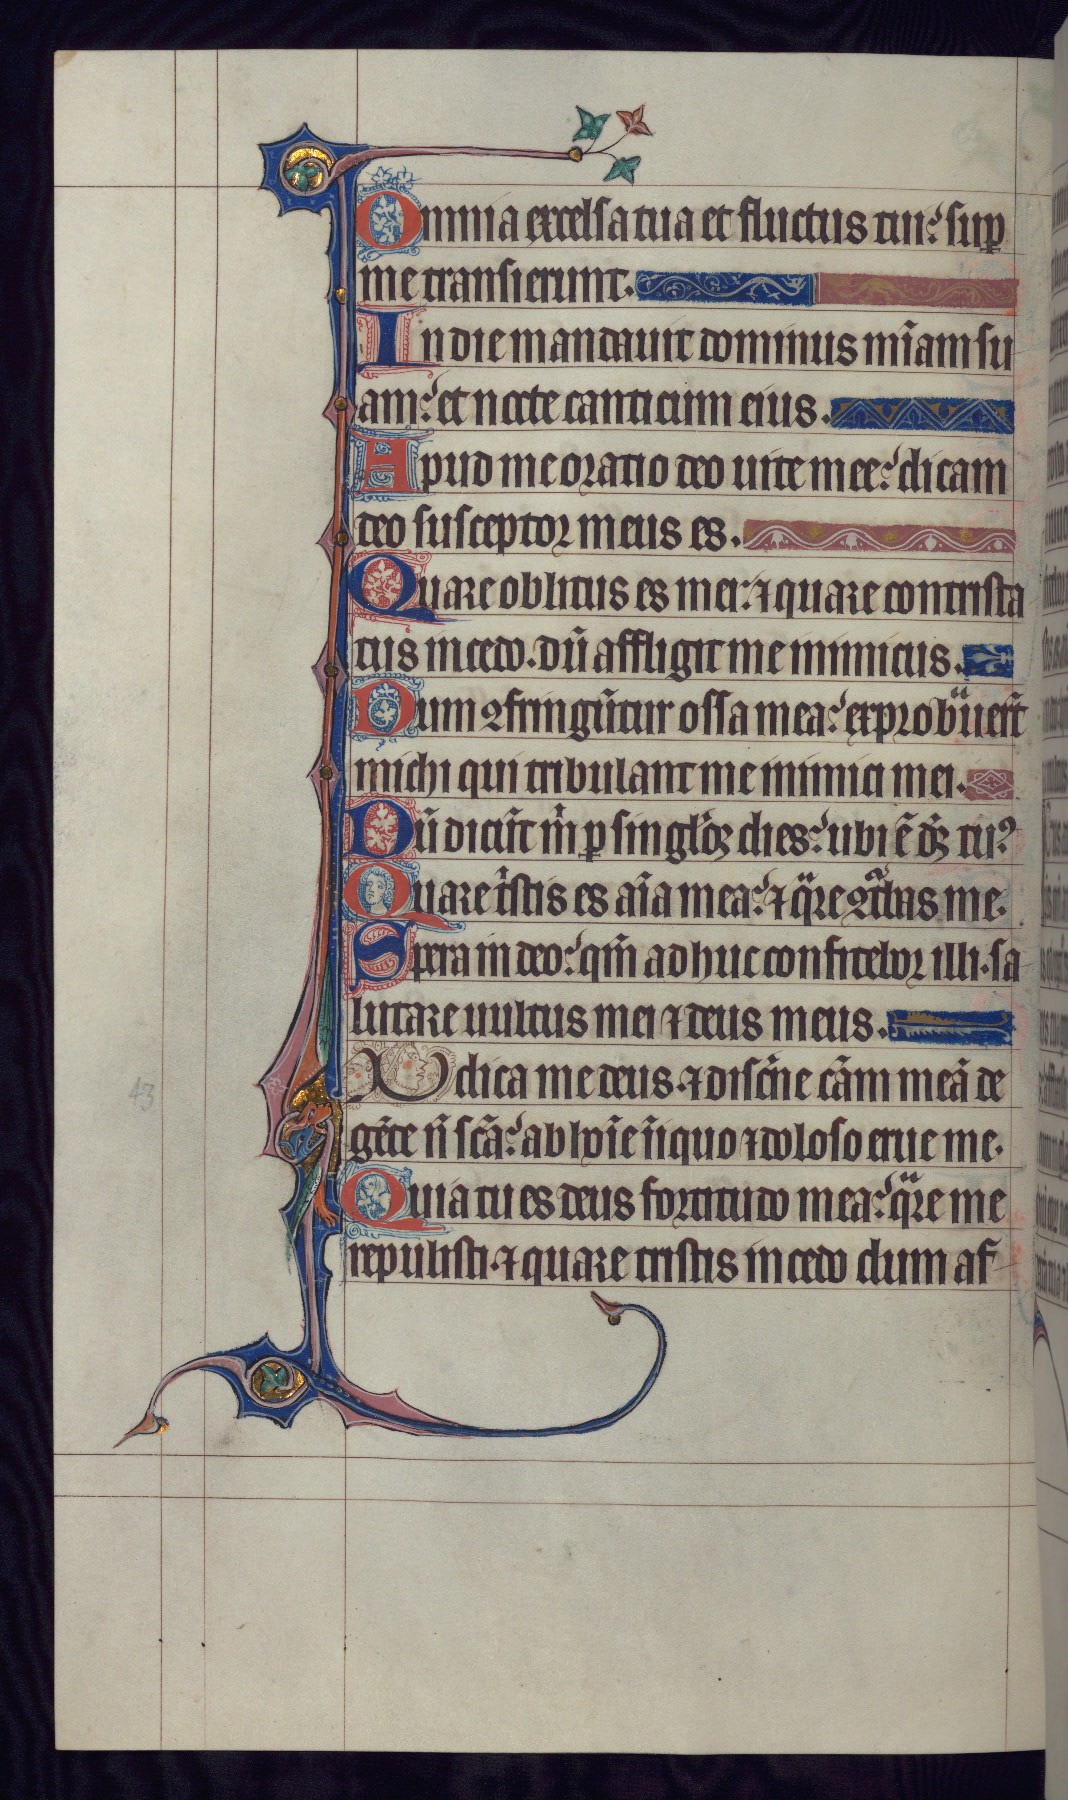 Omnia excelsa tua et fluctus tui: sup̱
me transierunt.
In die mandauit dominus mi̅am su
am: et nocte canticum eius.
Apud me oratio deo uite mee: dicam
deo susceptor meus es.
Quare oblitus es mei: ⁊ quare contrista
tus incedo. du̅ affligit me inimicus.
Dum ꝯfringu̅tur ossa mea: exprob̾uer̅t
michi qui tribulant me inimici mei.
Du̅ dicu̅t m̊ ꝑ singl̓oꝝ dies: ubi e̅ d̓s tu?
Quare t̓stis es ai̅a mea: ⁊ qᷓre ꝯt̓bas me.
Spera in deo: qm̅ adhuc confitebor illi. sa
lutare uultus mei ⁊ deus meus.
Iudica me deus. ⁊ discer̅ne ca̅m mea̅ de
ge̅te n̅ sc̅a: ab ho̅ie i̅iquo ⁊ doloso erue me.
Quia tu es deus fortitudo mea: qᷓre me
repulisti. ⁊ quare tristis incedo dum af
43